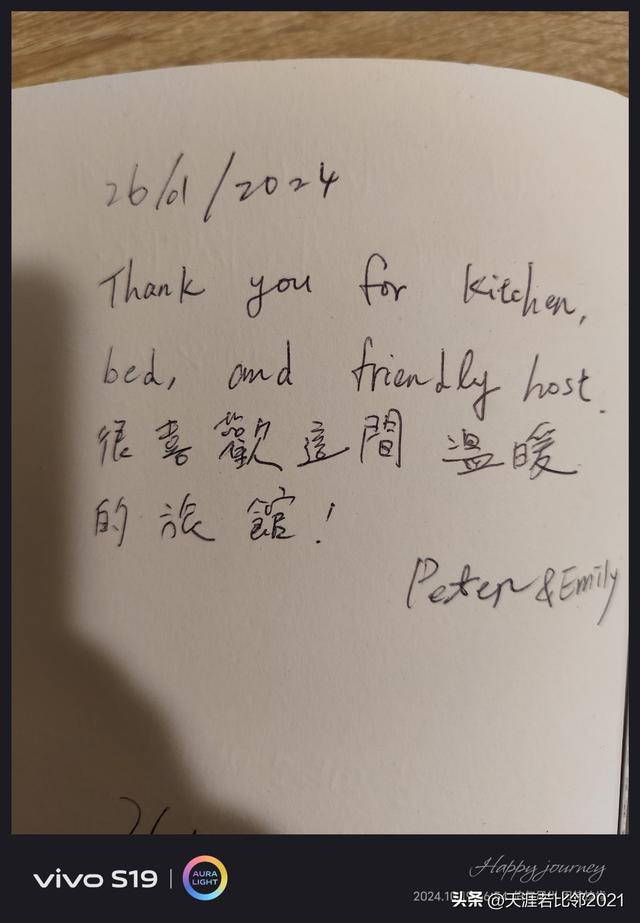 26/01/2024
Thank you for kitchen,
bed, and friendly host.
很喜歡這間 溫暖
的 旅館！
Peter & Emily
vivo S19
AURA
LIGHT
Happy journey
头条 @天涯若比邻2021